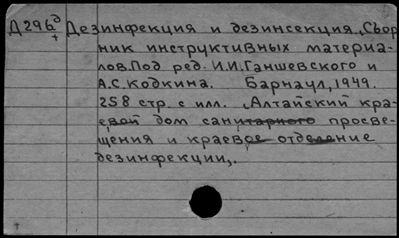 Д296д Дезинфекция и дезинсекция. Сбор
+
ник инструктивных материа-
лов. Под ред. И.И. Ганшевского и
А.С. Кодкина. Барнаул, 1949.
258 стр. с илл. „Алтайский кра-
евой дом санитарного просве-
щения и краевое отделение
дезинфекции„.